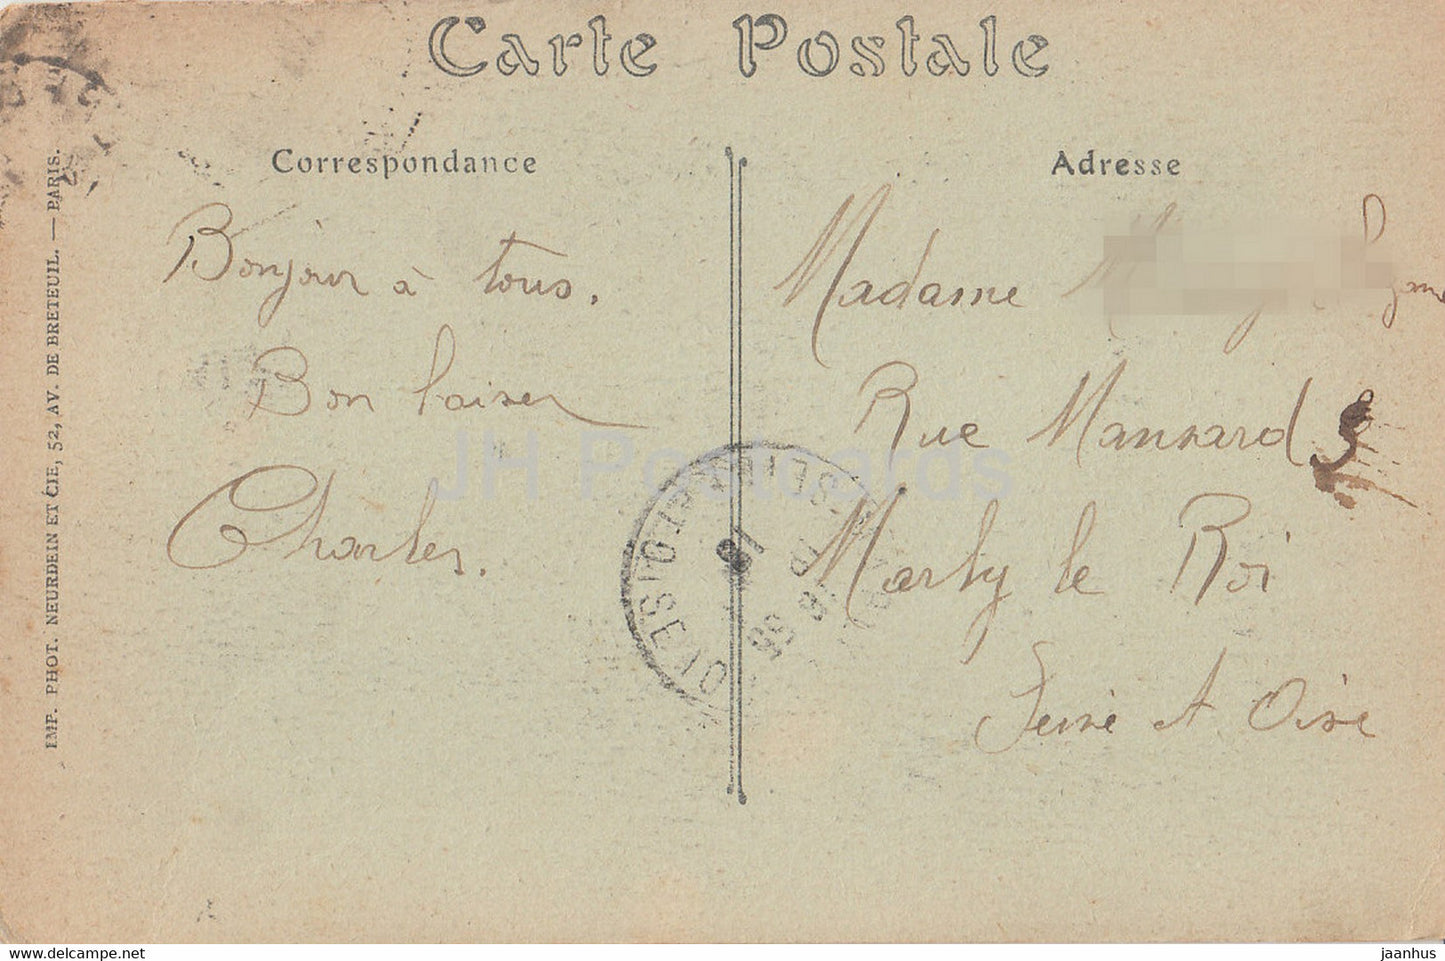 Carte Postale
Correspondance
Adresse
Bonjour à tous.
Bon baiser
Charles.
Madame
Rue Mansard
Marly le Roi
Seine et Oise
IMP. PHOT. NEURDEIN ET CIE, 52, AV. DE BRETEUIL. — PARIS.
JH Postcards
www.delcampe.net
jaanhus